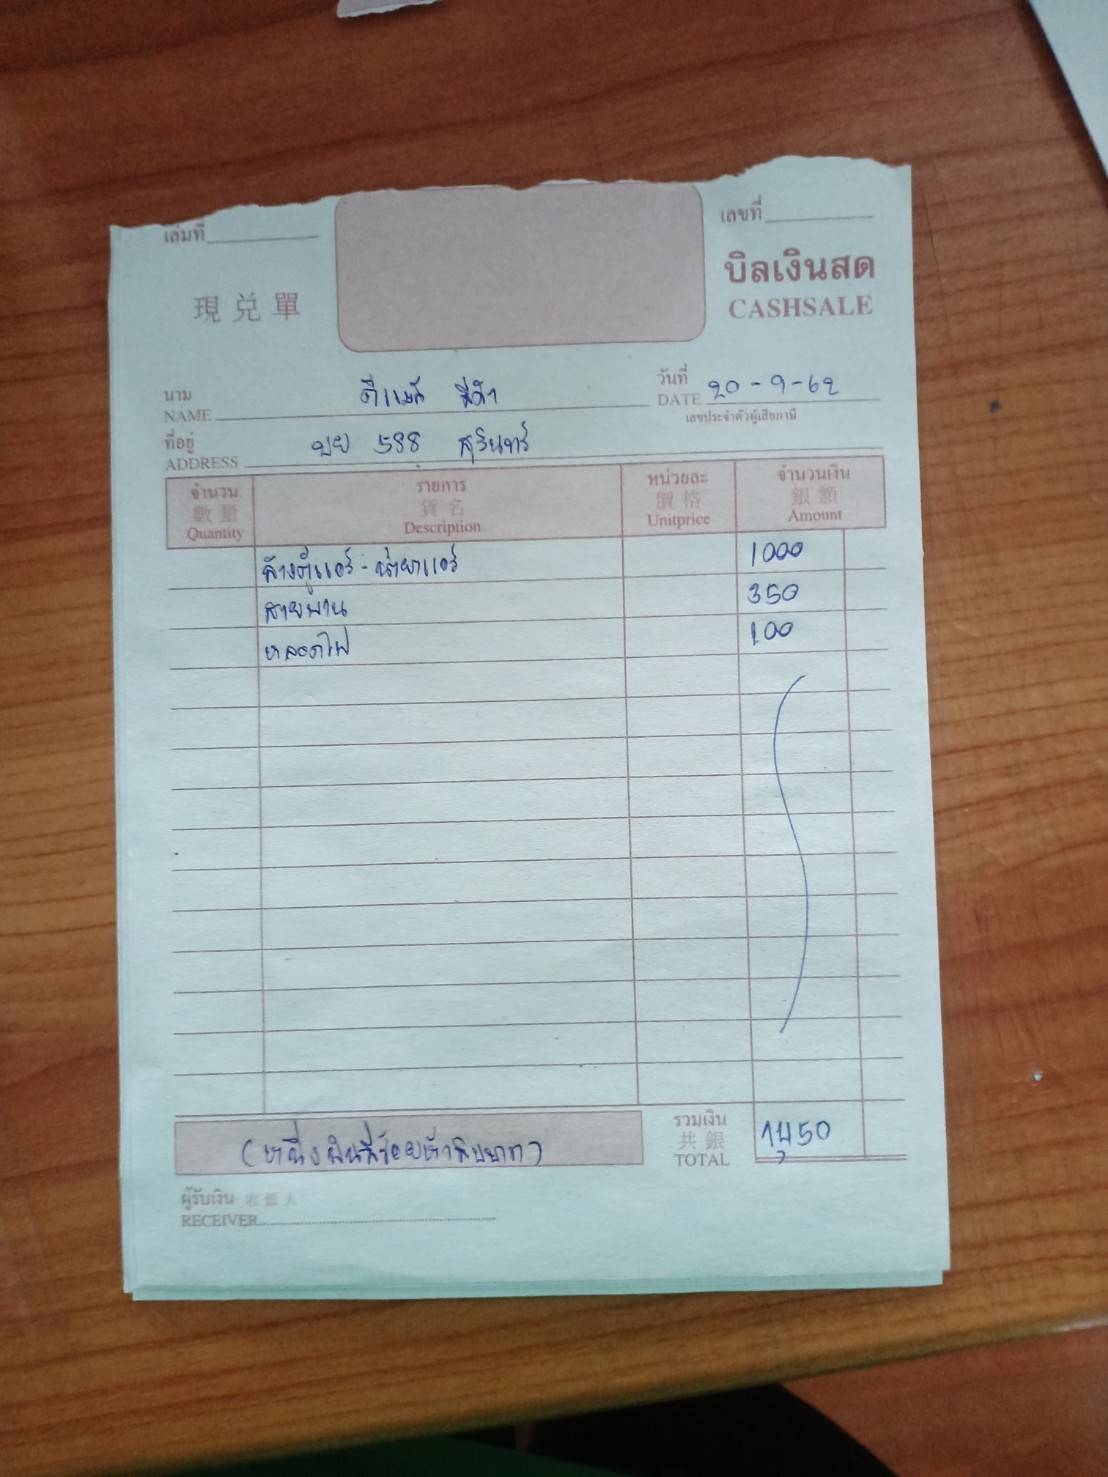 เล่มที่
เลขที่
現兌單
บิลเงินสด
CASHSALE
นาม
NAME
ดีแมส์
วันที่
DATE 20-9-62
เลขประจำตัวผู้เสียภาษี
ที่อยู่
ADDRESS
588 สุรินทร์
จำนวน รายการ หน่วยละ จำนวนเงิน
數量 貨名 價格 銀額
Quantity Description Unitprice Amount
ล้างตู้แอร์ - น้ำยาแอร์ 1000
สายพาน 350
หลอดไฟ 100
รวมเงิน
共銀
TOTAL
1,450
(หนึ่งพันสี่ร้อยห้าสิบบาท)
ผู้รับเงิน 收銀人
RECEIVER